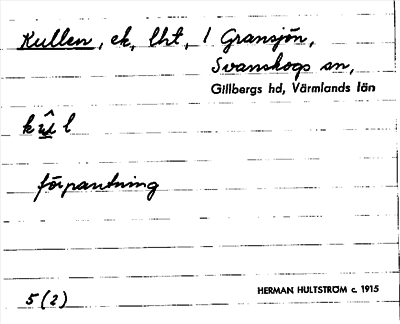 Kullen, ek, lht, / Gransjön,
Svanskogs sn,
Gillbergs hd, Värmlands län
förpantning
5(2)
HERMAN HULTSTRÖM c. 1915